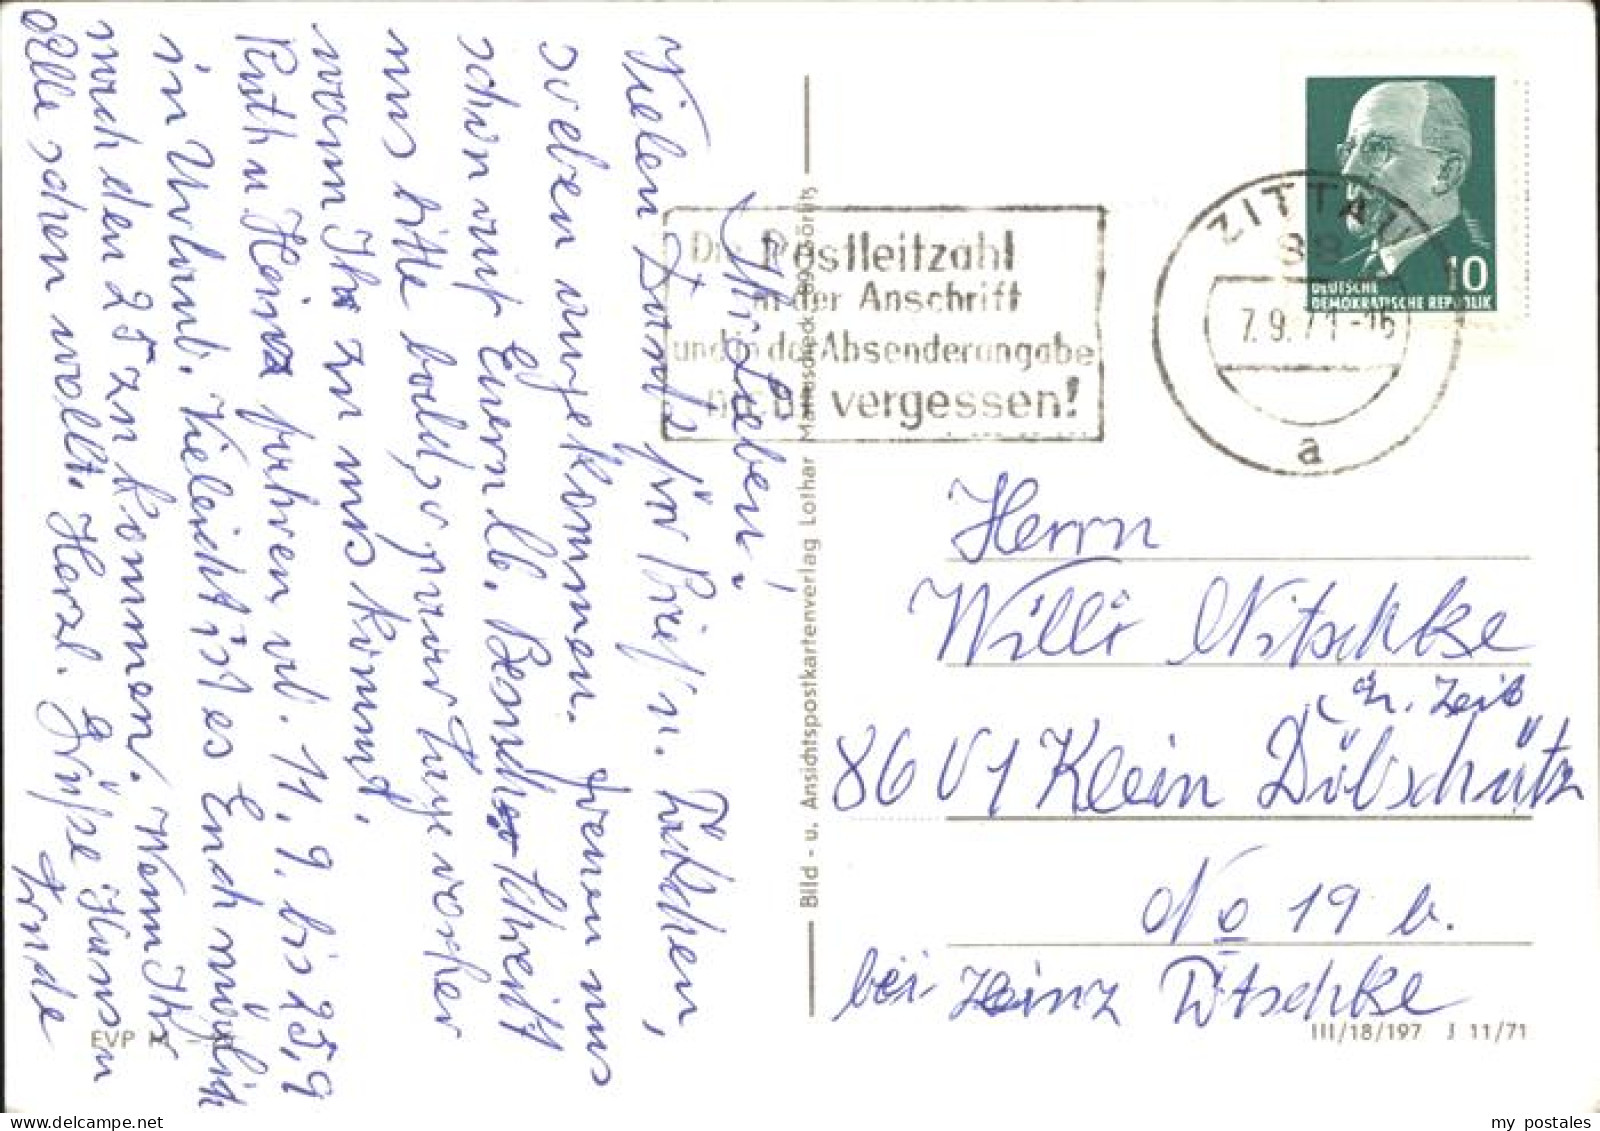 Ihr Lieben!
Vielen Dank für Brief u. Päckchen,
soeben angekommen. Freuen uns
schon auf Euern lb. Besuch. Schreibt
uns bitte bald, so paar Tage vorher
wann Ihr zu uns kommt.
Ruth u Heinz fahren vl. 11.9. bis 25.9
in Urlaub. Vieleicht ist es Euch möglich
nach den 25 zu kommen. Wenn Ihr
alle sehen wollt. Herzl. Grüße Hans u
Trude
EVP M
Bild - u. Ansichtspostkartenverlag Lothar Görlitz
Die Postleitzahl
in der Anschrift
und in der Absenderangabe
nicht vergessen!
ZITTAU
88
7.9.71-16
a
10
DEUTSCHE
DEMOKRATISCHE REPUBLIK
Herrn
Willi Nitschke
z. Zeit
8601 Klein Döbschütz
No 19 b.
bei Heinz Nitschke
III/18/197 J 11/71
my postales